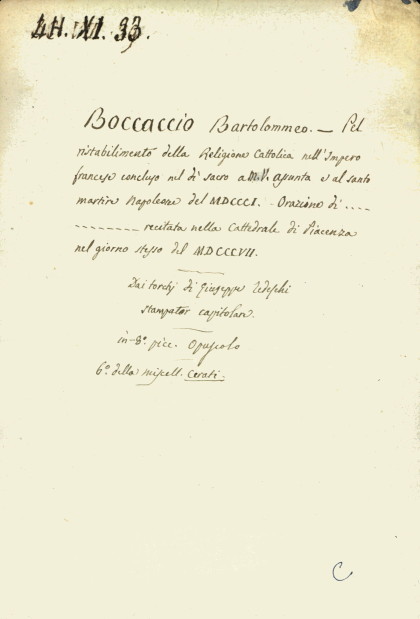 4H. XI. 33.
BOCCACCIO Bartolommeo. — Pel
ristabilimento della Religione Cattolica nell'Impero
francese concluso nel dì sacro a M.V. assunta e al santo
martire Napoleone del MDCCCI. Orazione di ....
........ recitata nella Cattedrale di Piacenza
nel giorno stesso del MDCCCVII.
Dai torchj di Giuseppe Tedeschi
stampator capitolare.
in-8º. picc. Opuscolo
6º. della miscell. Cerati.
C